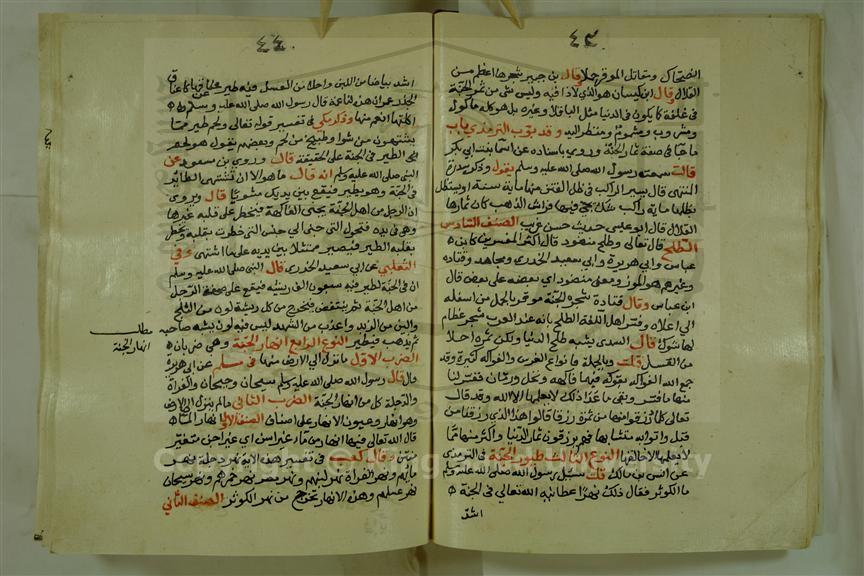 ٤٣
الضحاك ومقاتل الموقر حملا وقال بن جبير شجرها اعظم من
القلال وقال ابن كيسان هو الذي لا اذا فيه وليس شي من ثمر الجنة
في غلفة كما يكون في الدنيا مثل الباقلا وغيره بل هو كله ماكول
ومشروب ومشموم ومنظور اليه وقد بوب الترمذي باب
ما جا في صفة ثمار الجنة وروي باسناده عن اسما بنت ابي بكر
قالت سمعت رسول الله صلى الله عليه وسلم يقول وذكر سدرة
المنتهى قال يسير الراكب في ظل الفنن منها ماية سنة او يستظل
بظلها ماية راكب شك يحيى فيها فراش الذهب كان ثمارها
القلال قال ابو عيسى حديث حسن غريب الصنف السادس
الطلح قال تعالى وطلح منضود قال اكثر المفسرين كابن
عباس وابي هريرة وابي سعيد الخدري ومجاهد وقتادة
وغيرهم هو الموز ومعنى منضود اي بعضه على بعض قال
ابن عباس وقال قتادة شجره الجنة موقر بالحمل من اسفله
الى اعلاه وفسر اهل اللغة الطلح بانه عند العرب شجر عظام
لها شوك قال السدي يشبه طلح الدنيا ولكن ثمره احلا
من العسل قلت وبالجملة فانواع الغرس والفواكه كثيرة وقد
جمع الله الفواكه بقوله فيهما فاكهة ونخل ورمان ففسرنا
منها ما فسر وبقي ما عدا ذلك لا يعلمها الا الله وقد قال
تعالى كلما رزقوا منها من ثمرة رزقا قالوا هذا الذي رزقنا من
قبل واتوا به متشابها فهم يرزقون ثمار الدنيا واكثر منها مما
لا يعلمها الا خالقها النوع الثالث طيور الجنة في الترمذي
عن انس بن مالك قال سئل رسول الله صلى الله عليه وسلم
ما الكوثر فقال ذلك نهر اعطانيه الله تعالى في الجنة
اشد
٤٤
اشد بياضا من اللبن واحلا من العسل فيه طير اعناقها كاعناق
الجزر قال عمر ان هذه لناعمة قال رسول الله صلى الله عليه وسلم
اكلتها انعم منها وذكر مكي في تفسير قوله تعالى ولحم طير مما
يشتهون من شوا وطبيخ من لحم وبعضهم يقول هو لحم
الطير في الجنة على الحقيقة قال وروي بن مسعود عن
النبي صلى الله عليه وسلم انه قال ما هو الا ان تشتهي الطاير
في الجنة وهو يطير فيقع بين يديك مشويا قال ويروى
ان الرجل من اهل الجنة يجني الفاكهة فيخطر على قلبه غيرها
وهي في يده فتتحول التي جنى الى جنس التي خطرت بقلبه ويخطر
بقلبه الطير فيصير متمثلا بين يديه على ما اشتهى وفي
الثعلبي عن ابي سعيد الخدري قال النبي صلى الله عليه وسلم
ان في الجنة لطير فيه سبعون الف ريشه فيقع على صحفة الرجل
من اهل الجنة ثم ينتفض فيخرج من كل ريشة لون من الثلج
والين من الزبد واعذب من الشهد ليس فيه لون يشبه صاحبه
ثم يذهب فيطير النوع الرابع انهار الجنة وهي ضربان
الضرب الاول ما نزل الى الارض منها في مسلم عن ابي هريرة
قال قال رسول الله صلى الله عليه وسلم سيحان وجيحان والفراة
والدجلة كل من انهار الجنة الضرب الثاني ما لم ينزل الى الارض
وهو انهار وعيون الانهار على اصناف الصنف الاول انهار الماء
قال الله تعالى فيها انهار من ماء غير اسن اي غير اجن متغير
منتن وقال كعب في تفسير هذه الاية نهر دجلة نهر
مائهم ونهر الفراة نهر لبنهم ونهر مصر نهر خمرهم ونهر سيحان
نهر عسلهم وهذه الانهار تخرج من نهر الكوثر الصنف الثاني
مطلب
انهار الجنة